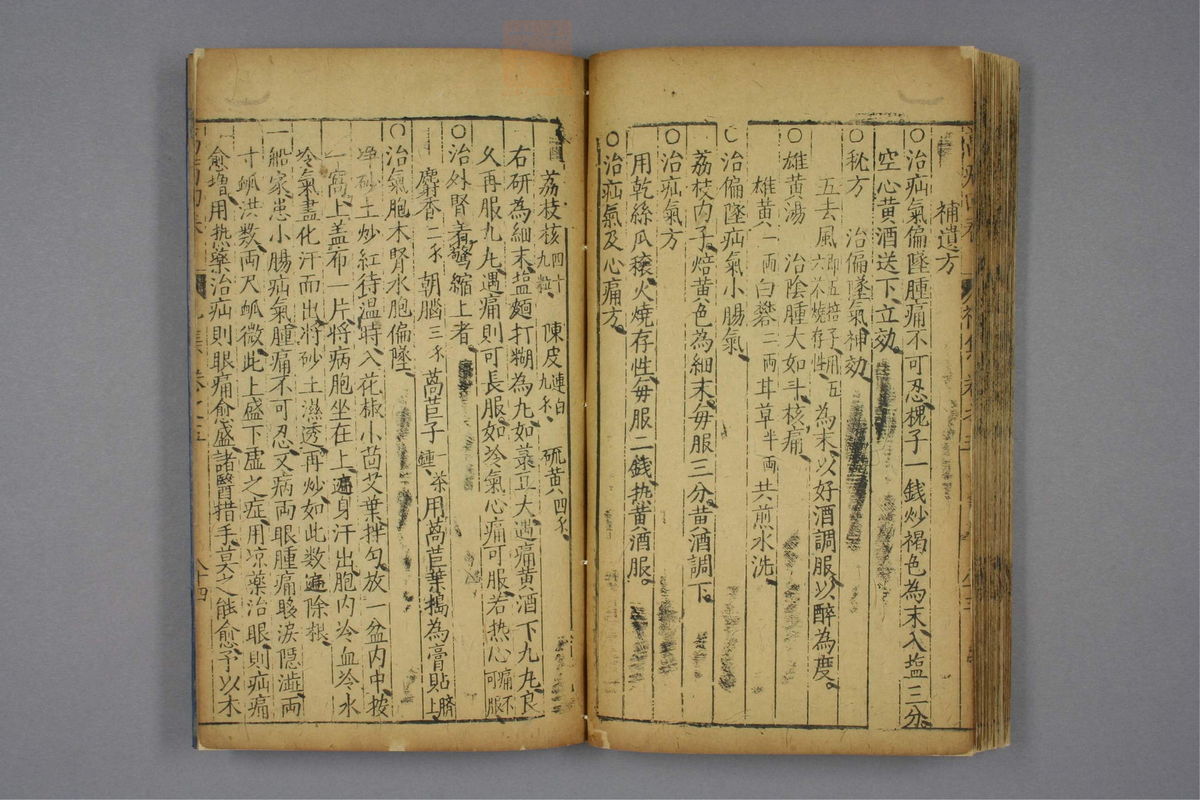 補遺方
○治疝氣偏墜腫痛不可忍槐子一錢炒褐色為末入塩三分
空心黄酒送下立効
○秘方 治偏墜氣神効
五去風即五掊子用五六不燒存性為末以好酒調服以醉為度
○雄黄湯 治陰腫大如斗核痛
雄黄一両白礬二両甘草半両共煎水洗
○治偏墜疝氣小腸氣
荔枝内子焙黄色為細末毎服三分黄酒調下
○治疝氣方
用乾絲瓜穰火燒存性毎服二錢热黄酒服
○治疝氣及心痛方
荔枝核四十九粒 陳皮連白九不 硫黄四不
右研為細末塩麵打糊為丸如菉豆大遇痛黄酒下九丸良
久再服九丸遇痛則可長服如冷氣心痛可服若热心痛不可服
○治外腎着驚縮上者
麝香二不朝腦三不萵苣子一茶鍾用萵苣葉搗為膏貼臍上
○治氣胞木腎水胞偏墜
净砂土炒紅待温時入花椒小茴艾葉拌匀放一盆内中按
一窩上盖布一片將病胞坐在上遍身汗出胞内冷血冷水
冷氣盡化汗而出將砂土濕透再炒如此数遍除根
一船家患小腸疝氣腫痛不可忍又病両眼腫痛眵涙隠澁両
寸脉洪数両尺脉微此上盛下虚之症用凉藥治眼則疝痛
愈増用热藥治疝則眼痛愈盛諸醫措手莫之能愈予以木
八十四